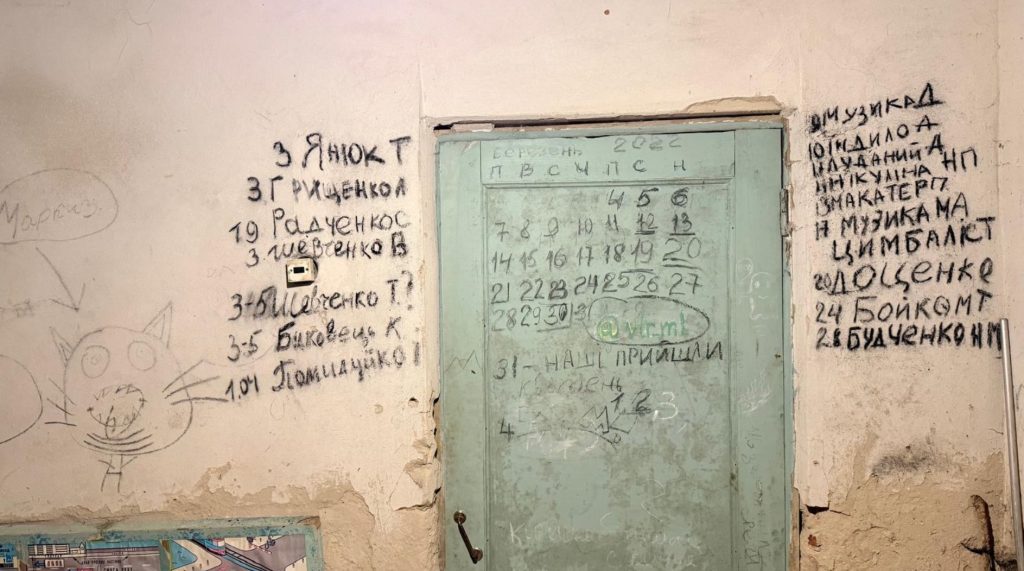 Маркіз
3 ЯНЮК Т
3 Грищенко Л
19 Радченко С
3 Шевченко В
3-5 Шевченко Т?
3-5 Биковець К
1.04
БЕРЕЗЕНЬ 2022
П В С Ч П С Н
4 5 6
7 8 9 10 11 12 13
14 15 16 17 18 19 20
21 22 23 24 25 26 27
28 29 30 31
@vtr.mt
31 - НАШІ ПРИЙШЛИ
1 2 3
4
9 МУЗИКА Д
10 А
ЛУДАНИЙ А
НП
13 МАКАТЕР П
МУЗИКА МА
ЦИМБАЛ КТ
20 ДОЩЕНКО
24 БОЙКО МТ
28 БУДЧЕНКО НМ